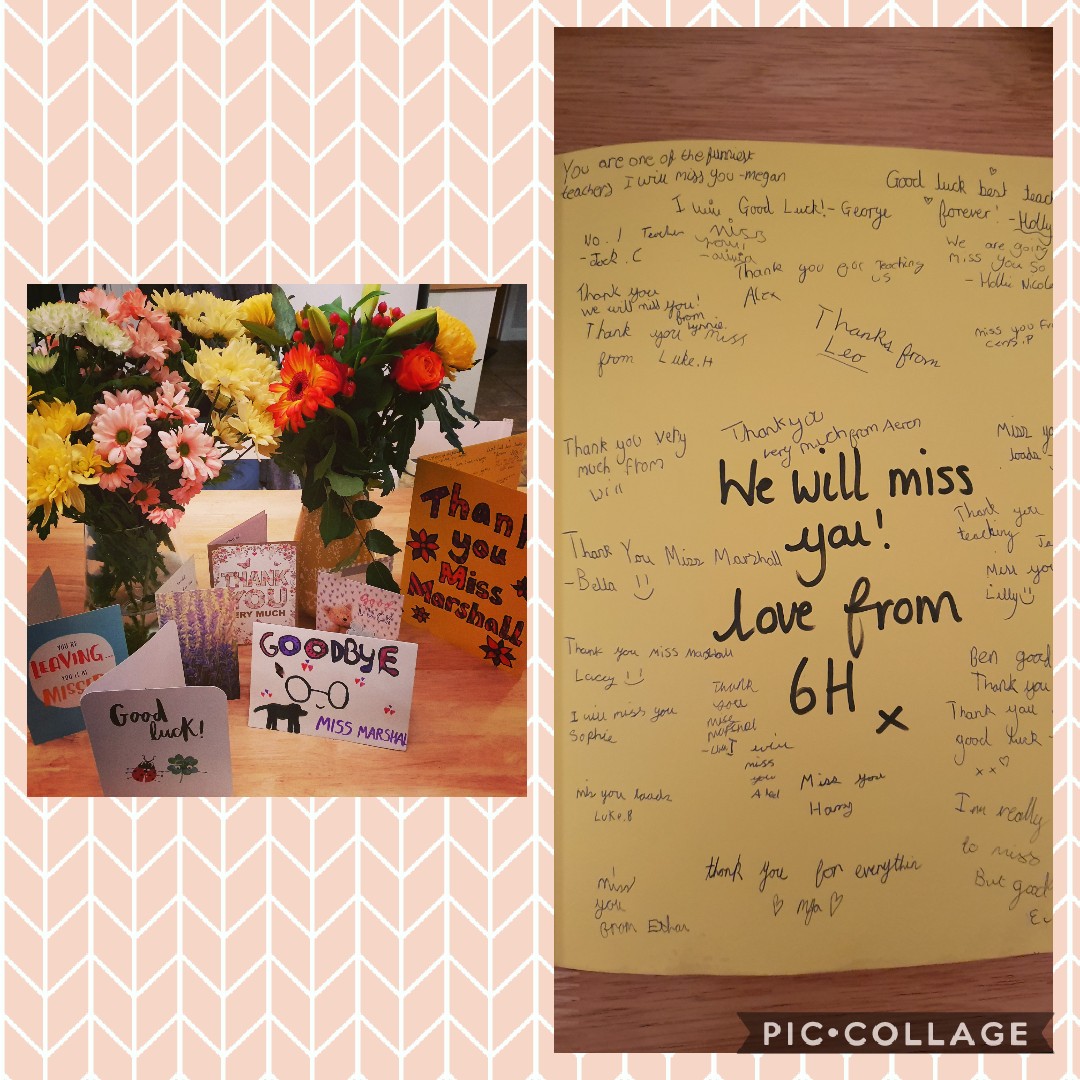 Thank
you
Miss
Marshall
THANK
YOU
VERY MUCH
GOOD
LUCK
YOU'RE
LEAVING...
YOU'LL BE
MISSED
GOODBYE
MISS MARSHAL
Good
luck!
You are one of the funniest
teachers I will miss you -megan
Good luck best teac
forever! -Holly
Good Luck! - George
No. 1 Teacher
- Jack . C
miss
you!
- olivia
We are going
miss you so
- Hollie Nicole
Thank you for teaching
us
Alex
Thank you
we will miss you!
from
Thank you miss
from Luke.H
Thanks from
Leo
miss you
Thank you very
much from
Will
Thank you
very much from Aeron
Miss yo
loads -
We will miss
you!
love from
6H x
Thank you
teaching
Thank You Miss Marshall
-Bella
Miss you
Lilly
Thank you miss Marshall
Lacey
Ben good
Thank you
I will miss you
Sophie
Thank
you
miss
marshal
I will
miss
you
Thank you
good luck -
x x
Miss you
Harry
miss you loads
Luke.B
I'm really
to miss
But good
thank you for everythin
Mya
miss
you
from Ethan
PIC•COLLAGE